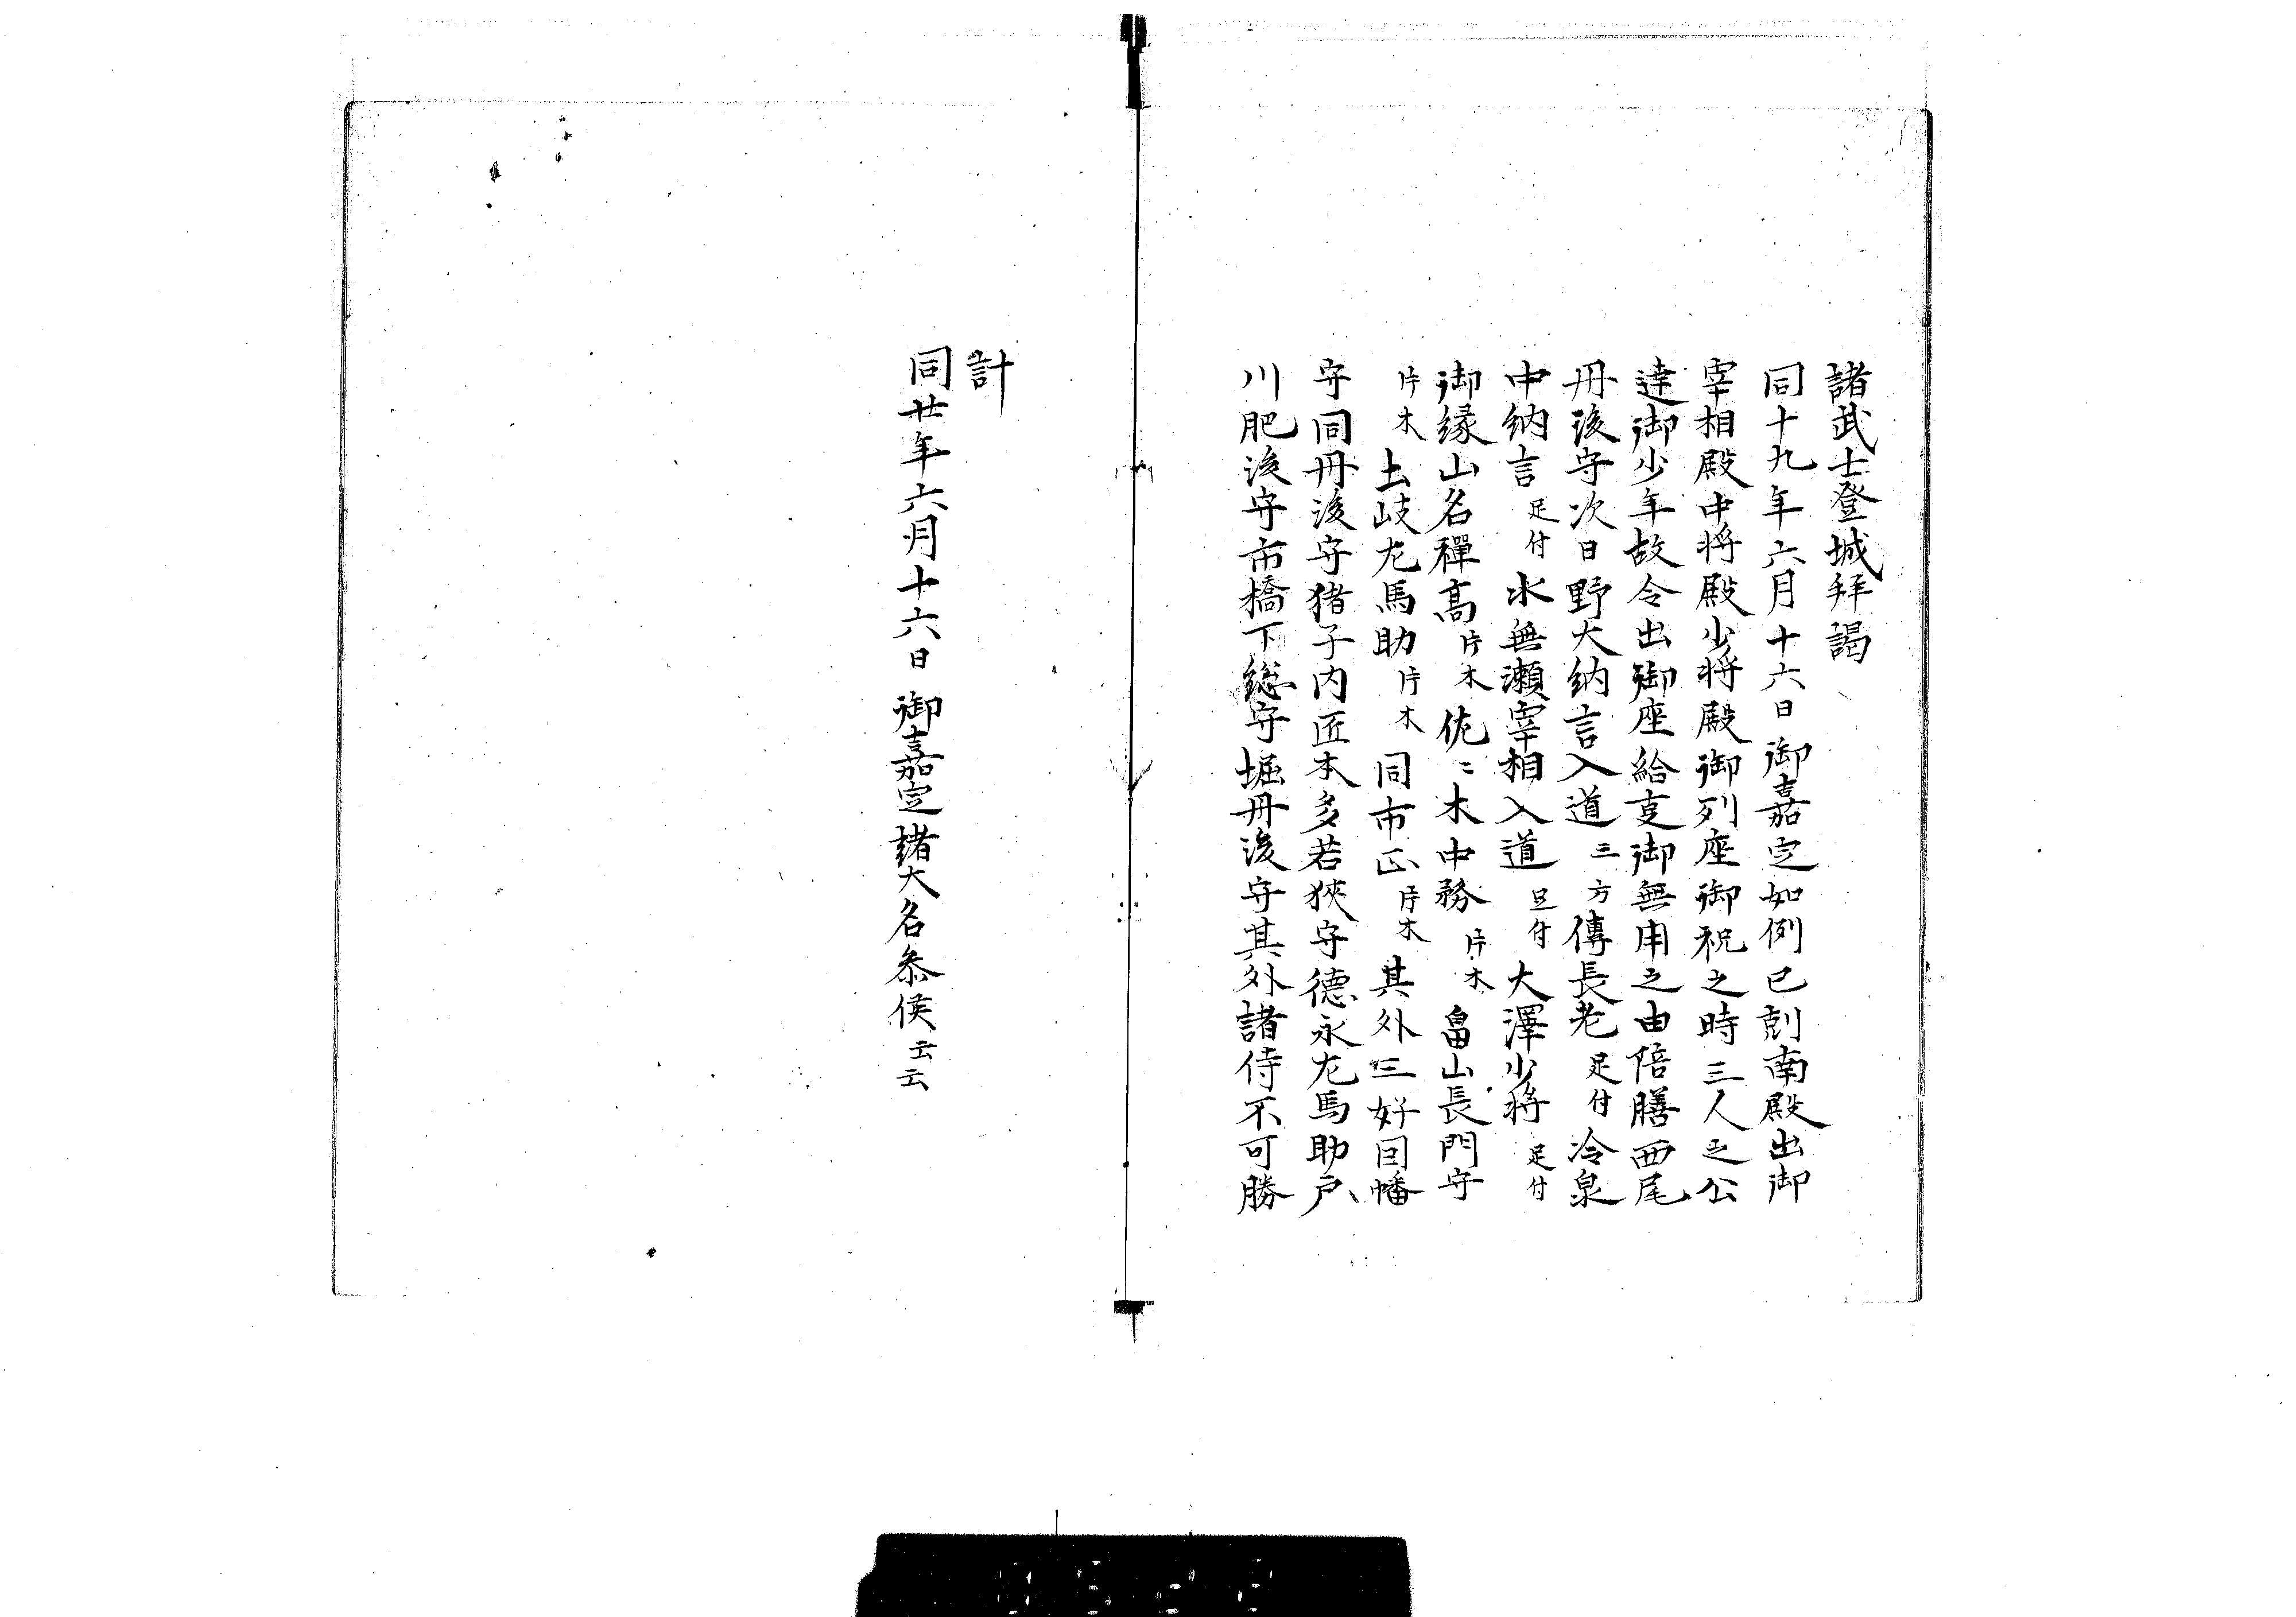 諸武士登城拜謁
同十九年六月十六日御嘉定如例已刻南殿出御
宰相殿中将殿少将殿御列座御祝之時三人之公
達御少年故令出御座給𠮟御無用之由陪膳西尾
丹後守次日野大納言入道三方傳長老足付冷泉
中納言足付水無瀬宰相入道足付大澤少将足付
御縁山名禪髙片木佐々木中務片木畠山長門守
片木土岐左馬助片木同市正片木其外三好因幡
守同丹後守猪子内匠本多若狹守德永左馬助戸
川肥後守市橋下総守堀丹後守其外諸侍不可勝
計
同廿年六月十六日御嘉定諸大名参候云云